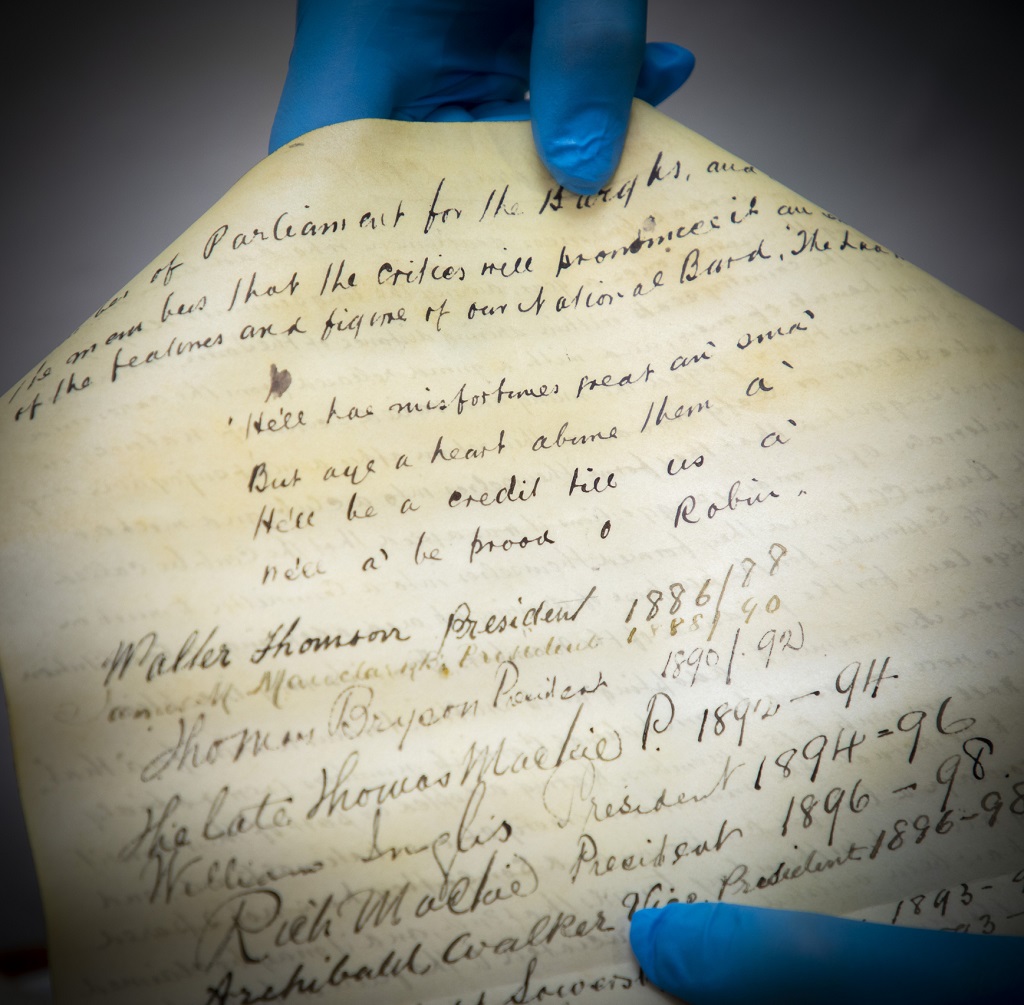 of Parliament for the Burghs, and
the members that the critics will pronounce it an
of the features and figure of our National Bard, The
'He'll hae misfortunes great an' sma'
But aye a heart abune them a'
He'll be a credit till us a'
We'll a' be prood o Robin.
Walter Thomson President 1886/88
President 1888/90
Thomas Bryson President 1890/92
The late Thomas Mackie P. 1892-94
William Inglis President 1894=96
Rich Mackie President 1896-98.
Archibald Walker Vice President 1896-98
1893-
93-